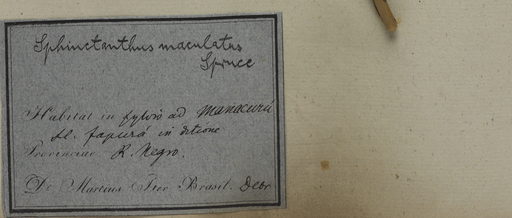 Sphinctanthus maculatus
Spruce
Habitat in sylvis ad Manacurú
fl. Japurá in ditione
Provinciae R. Negro.
Dr. Martius Iter Brasil. Debr.